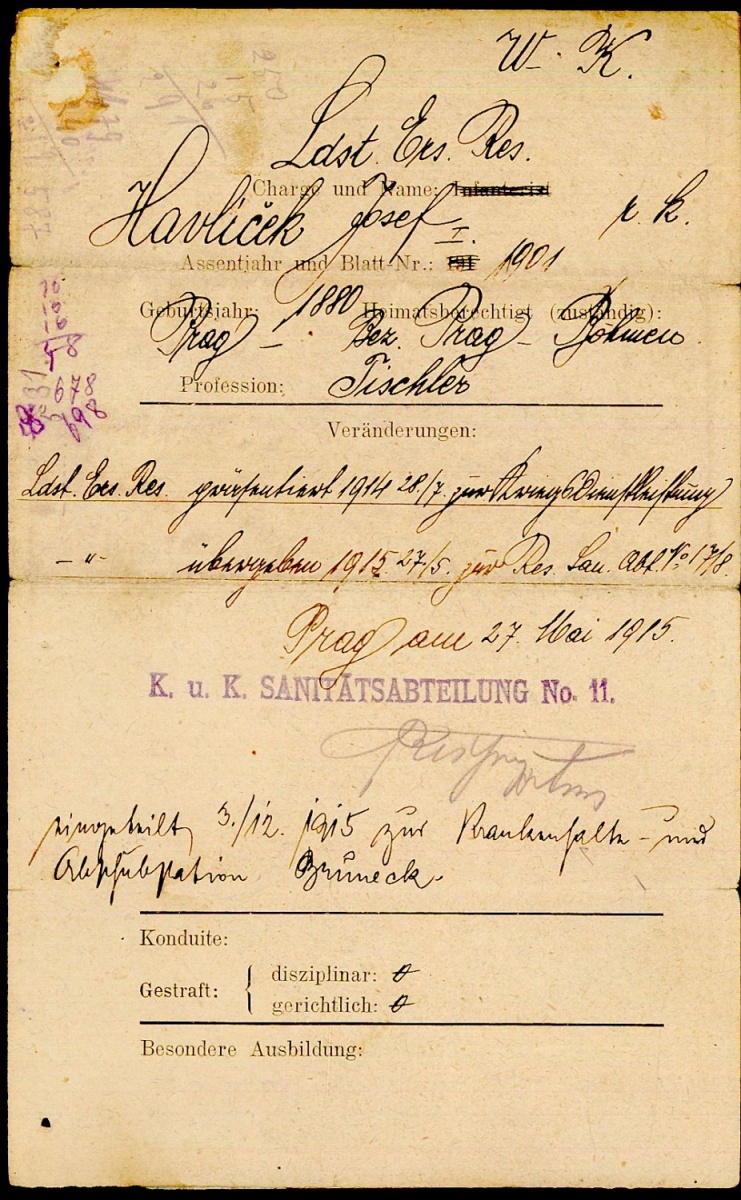 W. K.
Ldst. Ers. Res.
Charge und Name: Infanterist
Havlíček Josef I. r. k.
Assentjahr und Blatt-Nr.: 191 1901
Geburtsjahr: 1880 Heimatsberechtigt (zuständig):
Prag – Bez. Prag – Böhmen.
Profession: Tischler
Veränderungen:
Ldst. Ers. Res. präsentiert 1914 28./7. zur Kriegsdienstleistung
– " – übergeben 1915 27/5. zur Res. San. Abt. No 17/8.
Prag am 27. Mai 1915.
K. u. K. SANITÄTSABTEILUNG No. 11.
eingeteilt 3./12. 1915 zur Krankenhalte- und
Abschubstation Bruneck.
Konduite:
Gestraft: { disziplinar: 0
gerichtlich: 0
Besondere Ausbildung:
16
58
678
698